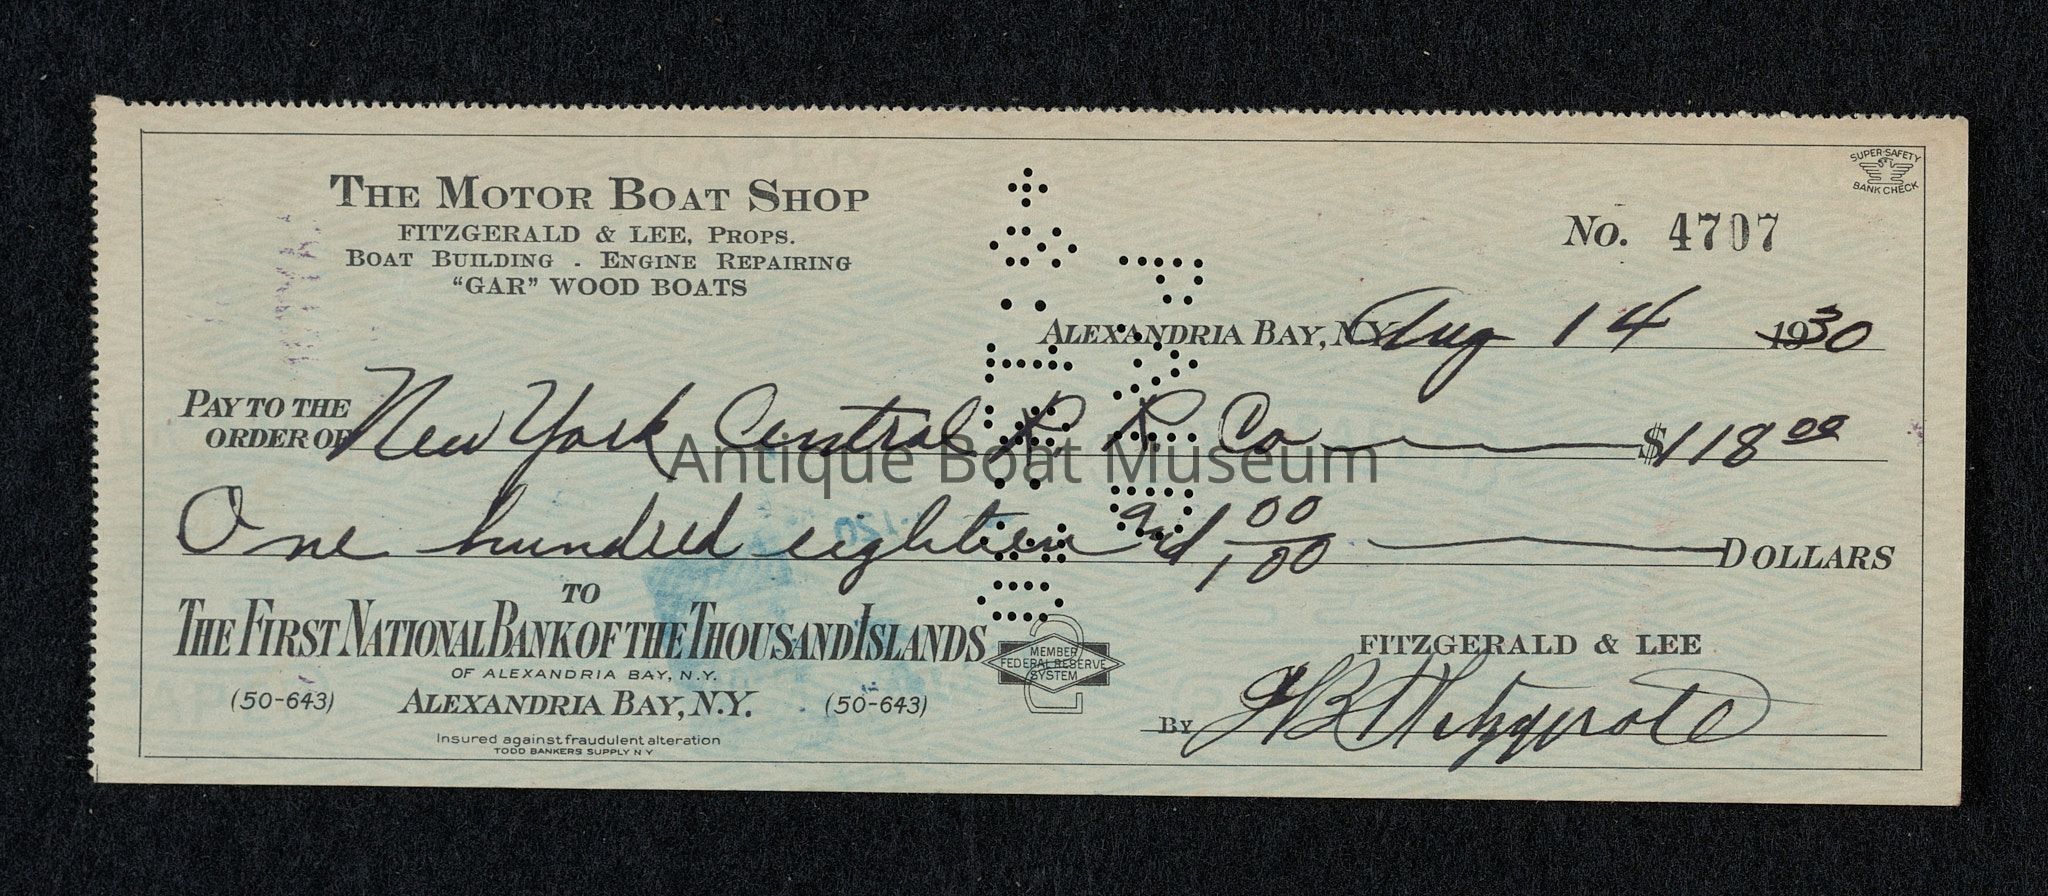 SUPER-SAFETY
BANK CHECK
THE MOTOR BOAT SHOP
FITZGERALD & LEE, PROPS.
BOAT BUILDING - ENGINE REPAIRING
"GAR" WOOD BOATS
No. 4707
ALEXANDRIA BAY, N.Y. Aug 14 1930
PAY TO THE
ORDER OF New York Central R. R. Co $118 00
Antique Boat Museum
One hundred eighteen and 00/100 DOLLARS
TO
THE FIRST NATIONAL BANK OF THE THOUSAND ISLANDS
OF ALEXANDRIA BAY, N.Y.
(50-643) ALEXANDRIA BAY, N.Y. (50-643)
Insured against fraudulent alteration
TODD BANKERS SUPPLY N Y
MEMBER
FEDERAL RESERVE
SYSTEM
FITZGERALD & LEE
BY Fitzgerald